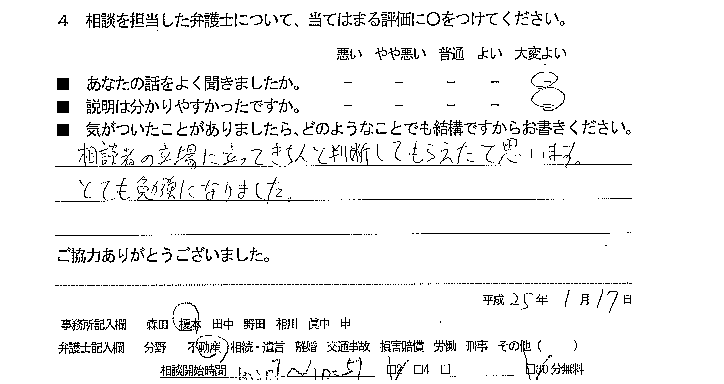 4 相談を担当した弁護士について、当てはまる評価に○をつけてください。
悪い やや悪い 普通 よい 大変よい
■ あなたの話をよく聞きましたか。 － － － － －
■ 説明は分かりやすかったですか。 － － － － －
■ 気がついたことがありましたら、どのようなことでも結構ですからお書きください。
相談者の立場に立ってきちんと判断してもらえたと思います。
とても勉強になりました。
ご協力ありがとうございました。
平成 25 年 1 月 17 日
事務所記入欄 森田 榎本 田中 野田 相川 申
弁護士記入欄 分野 不動産 相続・遺言 離婚 交通事故 損害賠償 労働 刑事 その他（ ）
相談開始時間 □2 □4 □ □30 分無料